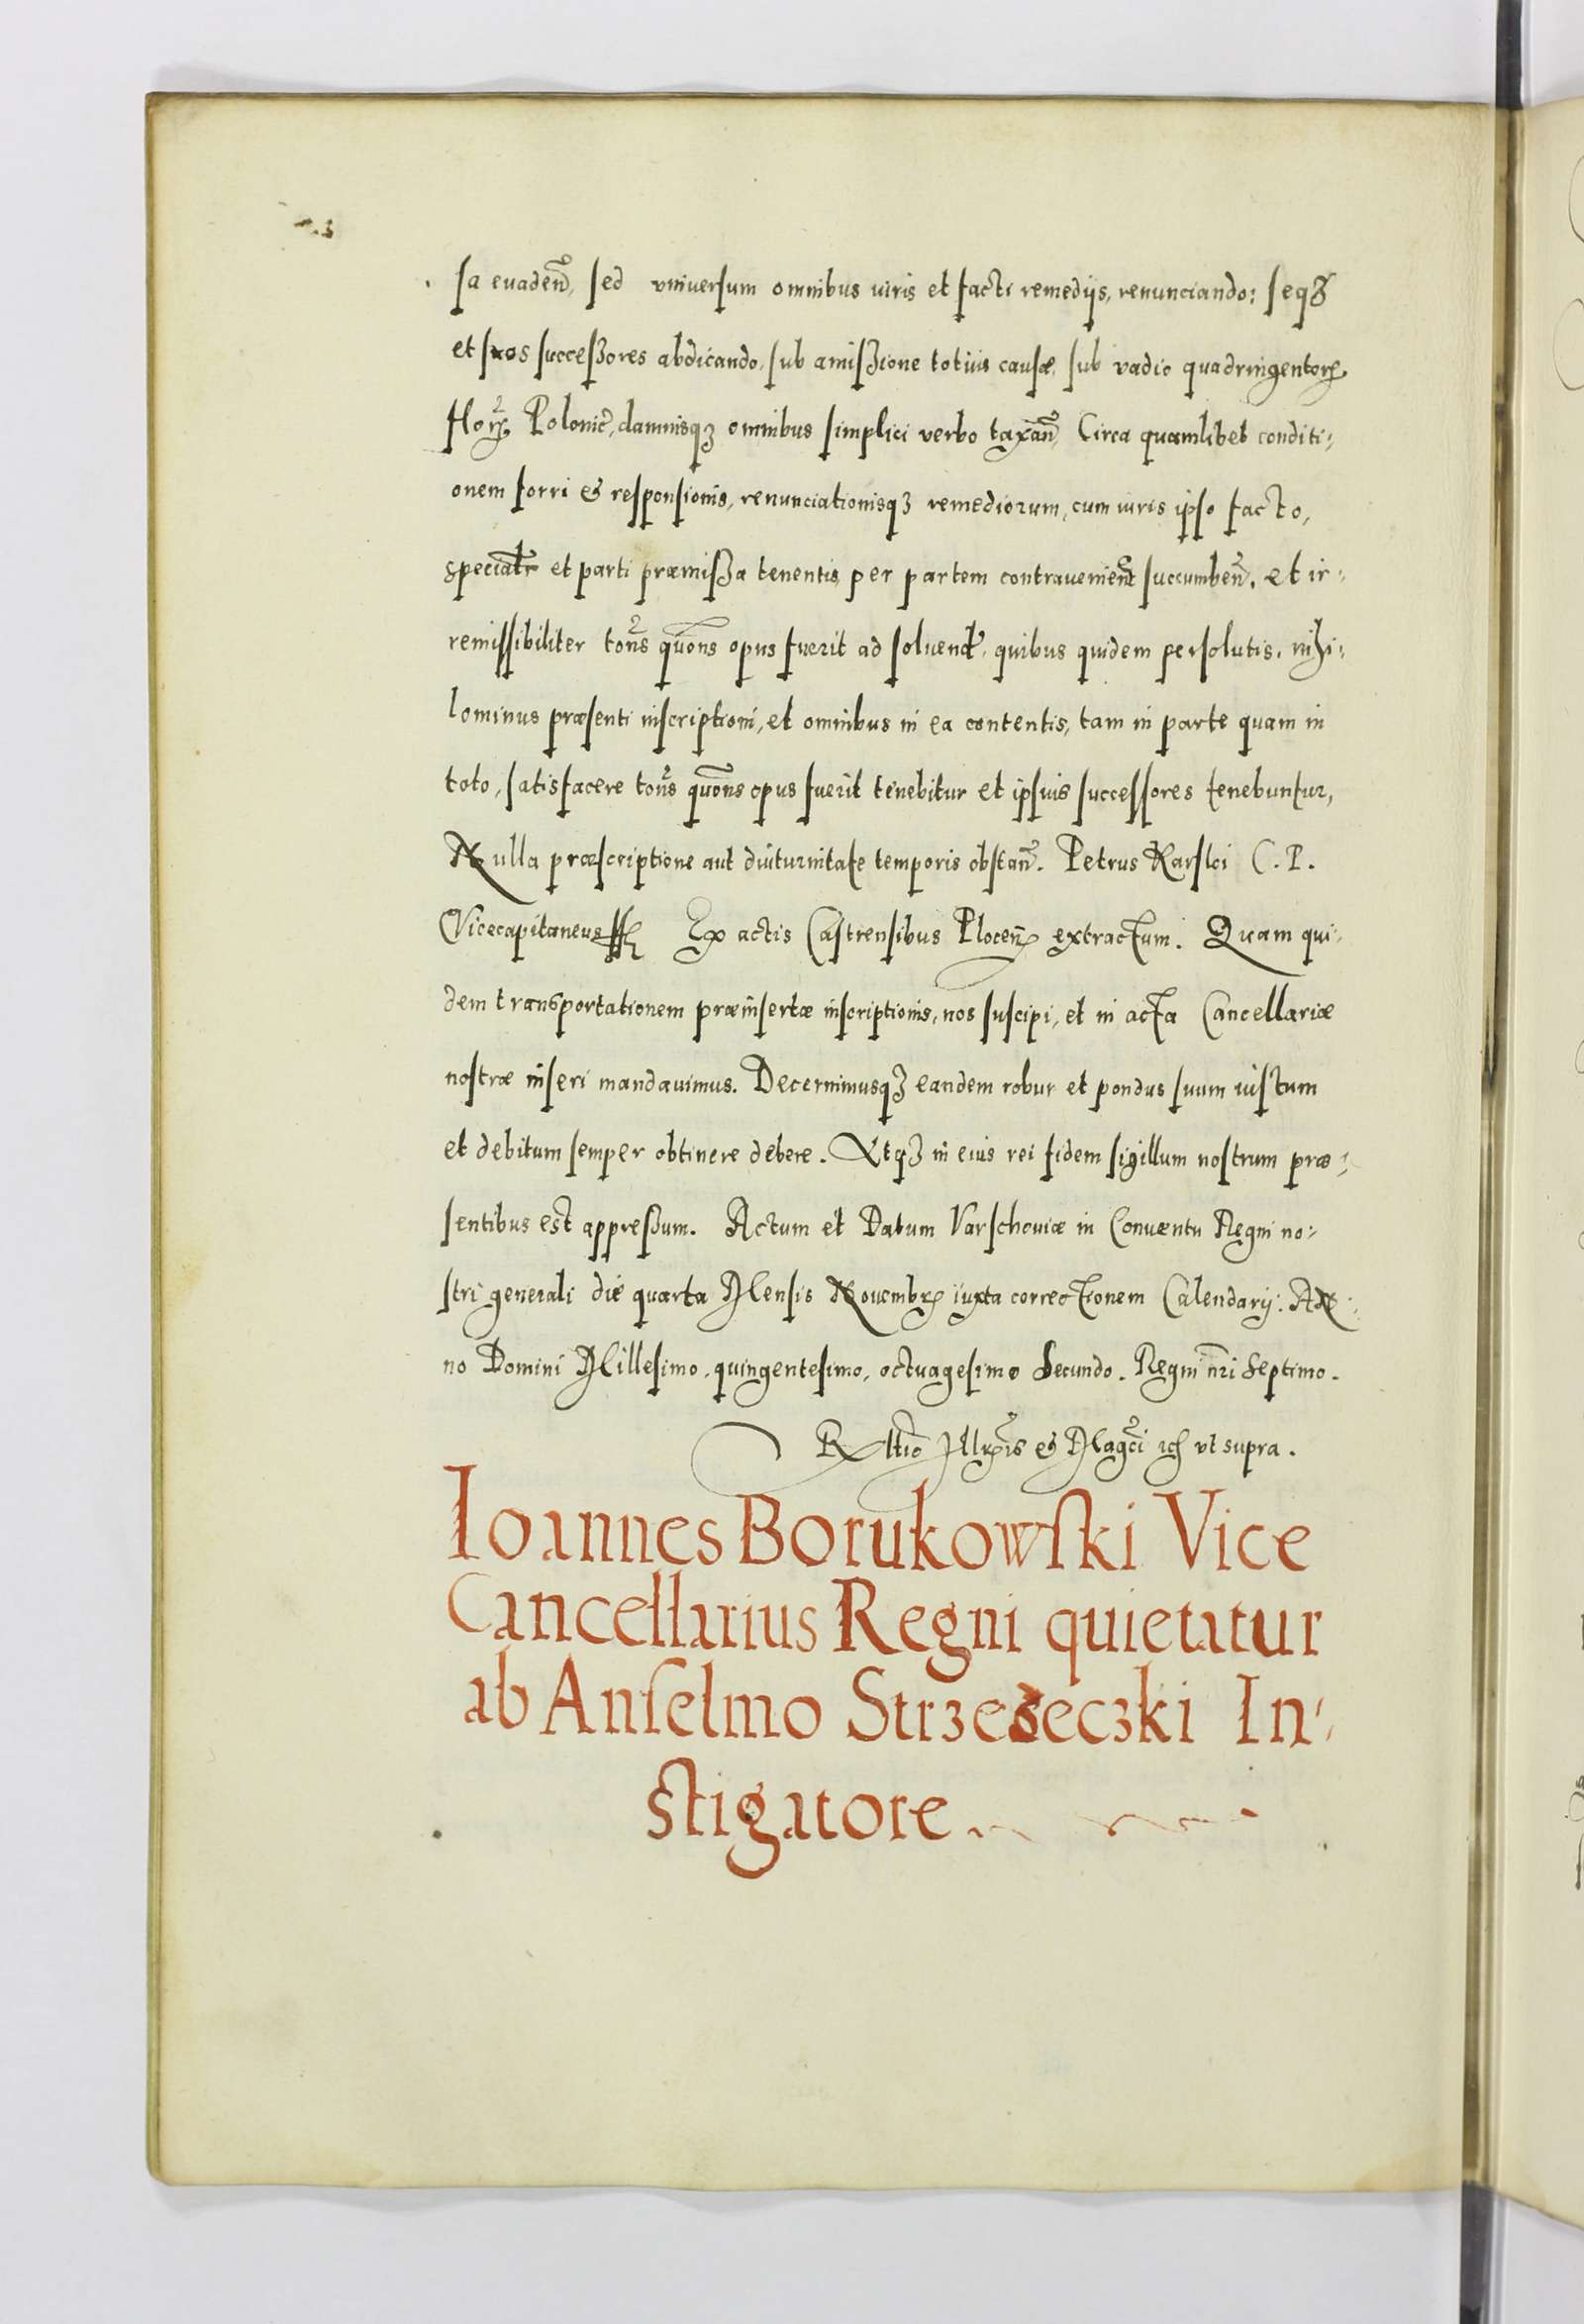 sa evadeñ, sed vniversum omnibus iuris et facti remedijs, renunciando: seq3
et suos successores abdicando, sub amissione totius causæ, sub vadio quadringentorꝝ
florꝝ Polonić, damnisq3 omnibus simplici verbo taxañ, Circa quamlibet conditi:
onem forri & responsionis, renunciationisq3 remediorum, cum iuris ipso facto,
specialr et parti præmissa tenentis per partem contravenient succumbeñ, et ir:
remissibiliter tons quons opus fuerit ad soluend, quibus quidem persolutis, nihi:
lominus præsenti inscriptioni, et omnibus in ea contentis, tam in parte quam in
toto, satisfacere tons quons opus fuerit tenebitur et ipsius successores tenebuntur,
Nulla præscriptione aut diuturnitate temporis obstañ. Petrus Karski C. P.
Vicecapitaneus Ex actis Castrensibus Ploceñ extractum. Quam qui:
dem transportationem præinsertæ inscriptionis, nos suscipi, et in acta Cancellariæ
nostræ inseri mandavimus. Decernimusq3 eandem robur et pondus suum iustum
et debitum semper obtinere debere. Atq3 in eius rei fidem sigillum nostrum præ:
sentibus est appressum. Actum et Datum Varschoviæ in Conventu Regni no:
stri generali die quarta Mensis Novembrꝝ iuxta correctionem Calendarij. An:
no Domini Millesimo, quingentesimo, octuagesimo Secundo. Regni nri Septimo.
Rltio Illris & Magci vt supra.
Ioannes Borukowſki Vice
Cancellarius Regni quietatur
ab Anſelmo Strzezeczki In:
ſtigatore.